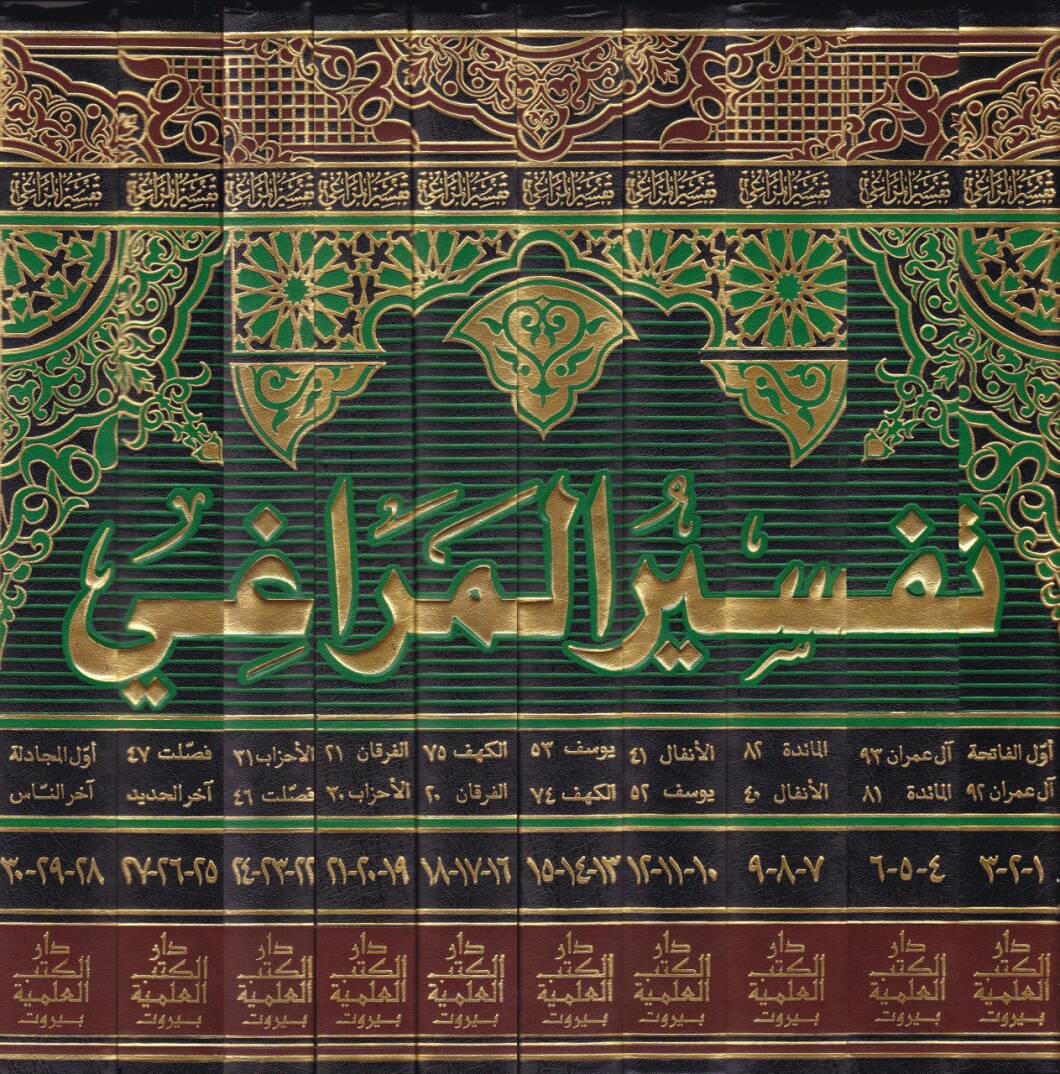 تفسير المراغي تفسير المراغي تفسير المراغي تفسير المراغي تفسير المراغي تفسير المراغي تفسير المراغي تفسير المراغي تفسير المراغي تفسير المراغي
تفسير المَرَاغِي
أوّل الفاتحة آل عمران ٩٣ المائدة ٨٢ الأنفال ٤١ يوسف ٥٣ الكهف ٧٥ الفرقان ٢١ الأحزاب ٣١ فصّلت ٤٧ أوّل المجادلة
آل عمران ٩٢ المائدة ٨١ الأنفال ٤٠ يوسف ٥٢ الكهف ٧٤ الفرقان ٢٠ الأحزاب ٣٠ فصّلت ٤٦ آخر الحديد آخر النّاس
١-٢-٣ ٤-٥-٦ ٧-٨-٩ ١٠-١١-١٢ ١٣-١٤-١٥ ١٦-١٧-١٨ ١٩-٢٠-٢١ ٢٢-٢٣-٢٤ ٢٥-٢٦-٢٧ ٢٨-٢٩-٣٠
دار دار دار دار دار دار دار دار دار دار
الكتب الكتب الكتب الكتب الكتب الكتب الكتب الكتب الكتب الكتب
العلمية العلمية العلمية العلمية العلمية العلمية العلمية العلمية العلمية العلمية
بيروت بيروت بيروت بيروت بيروت بيروت بيروت بيروت بيروت بيروت